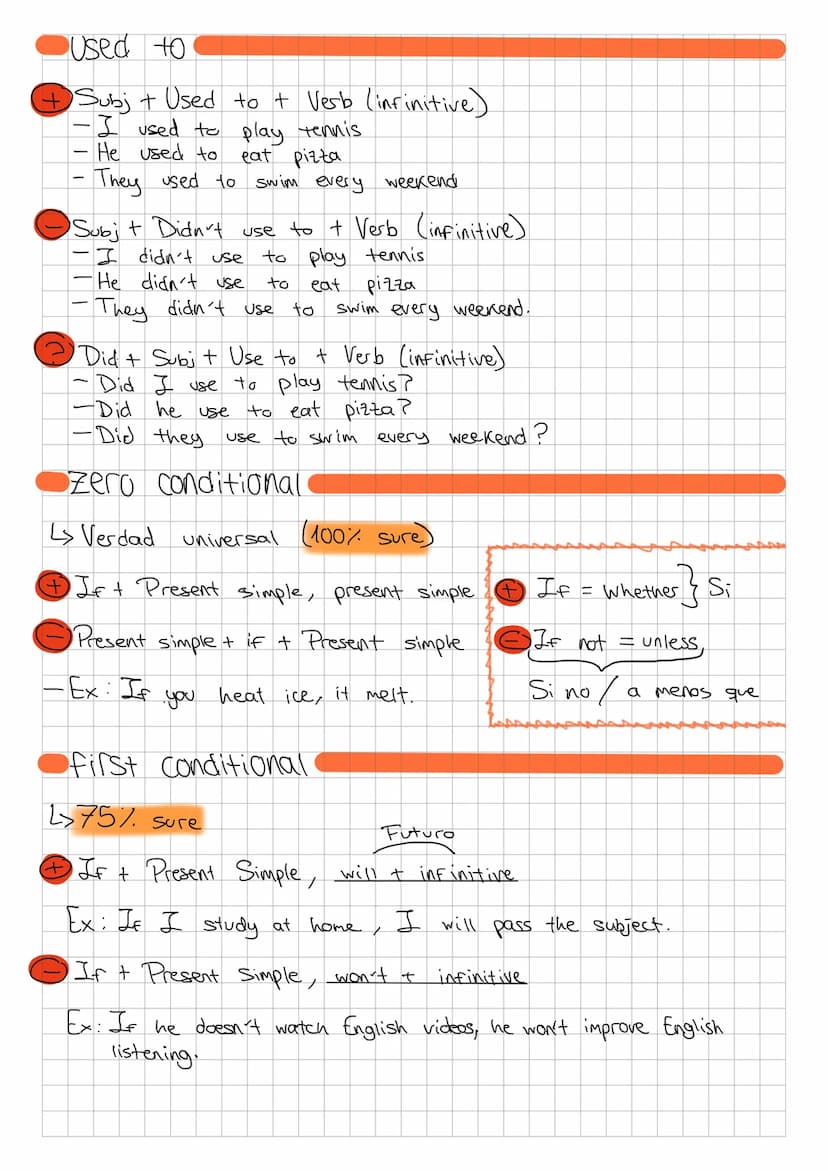 Used to
+ Subj + Used to + Verb (infinitive)
- I used to play tennis
- He used to eat pizza
- They used to swim every weekend
- Subj + Didn't use to + Verb (infinitive)
- I didn't use to play tennis
- He didn't use to eat pizza
- They didn't use to swim every weekend.
? Did + Subj + Use to + Verb (infinitive)
- Did I use to play tennis?
- Did he use to eat pizza?
- Did they use to swim every weekend?
zero conditional
↳ Verdad universal (100% sure)
+ If + Present simple, present simple
- Present simple + if + Present simple
- Ex: If you heat ice, it melt.
+ If = whether } Si
- If not = unless
Si no / a menos que
first conditional
↳ 75% sure
Futuro
+ If + Present Simple, will + infinitive
Ex: If I study at home, I will pass the subject.
- If + Present Simple, won't + infinitive
Ex: If he doesn't watch English videos, he won't improve English
listening.